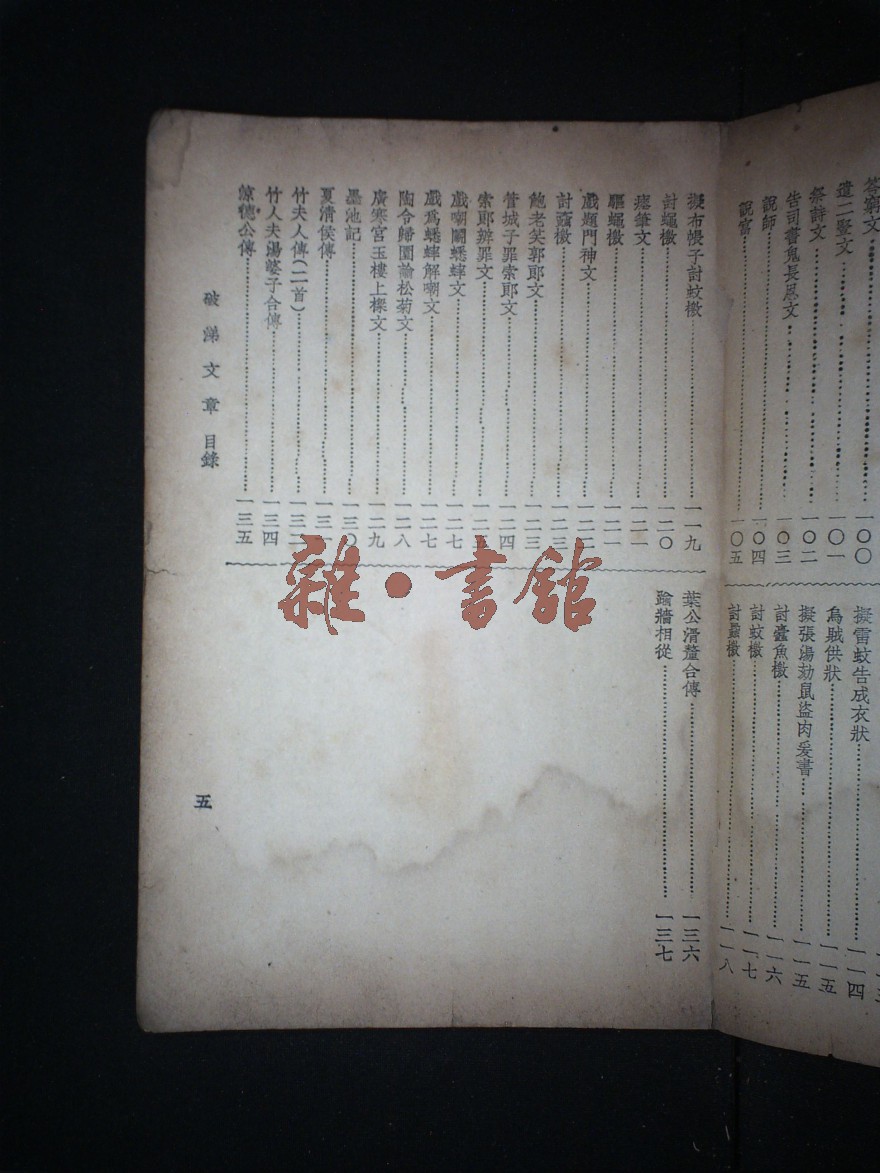 答窮文……一〇〇
遣二豎文……一〇一
祭詩文……一〇二
告司書鬼長恩文……一〇三
説師……一〇四
説富……一〇五
擬雷蚊告成衣狀……一一四
烏賊供狀……一一五
擬張湯劾鼠盜肉爰書……一一五
討蠹魚檄……一一六
討蚊檄……一一七
討蝨檄……一一八
擬布帳子討蚊檄……一一九
討蠅檄……一二〇
瘞筆文……一二一
驅蠅檄……一二一
戲題門神文……一二二
討蝨檄……一二三
鮑老笑郭郎文……一二三
管城子罪索郎文……一二四
索郎辨罪文……一二五
戲嘲鬭蟋蟀文……一二七
戲爲蟋蟀解嘲文……一二七
陶令歸園諭松菊文……一二八
廣寒宮玉樓上樑文……一二九
墨池記……一三〇
夏清侯傳……一三一
竹夫人傳(二首)……一三二
竹人夫湯婆子合傳……一三四
涼德公傳……一三五
葉公滑釐合傳……一三六
踰牆相從……一三七
破涕文章 目錄
五
雜·書館